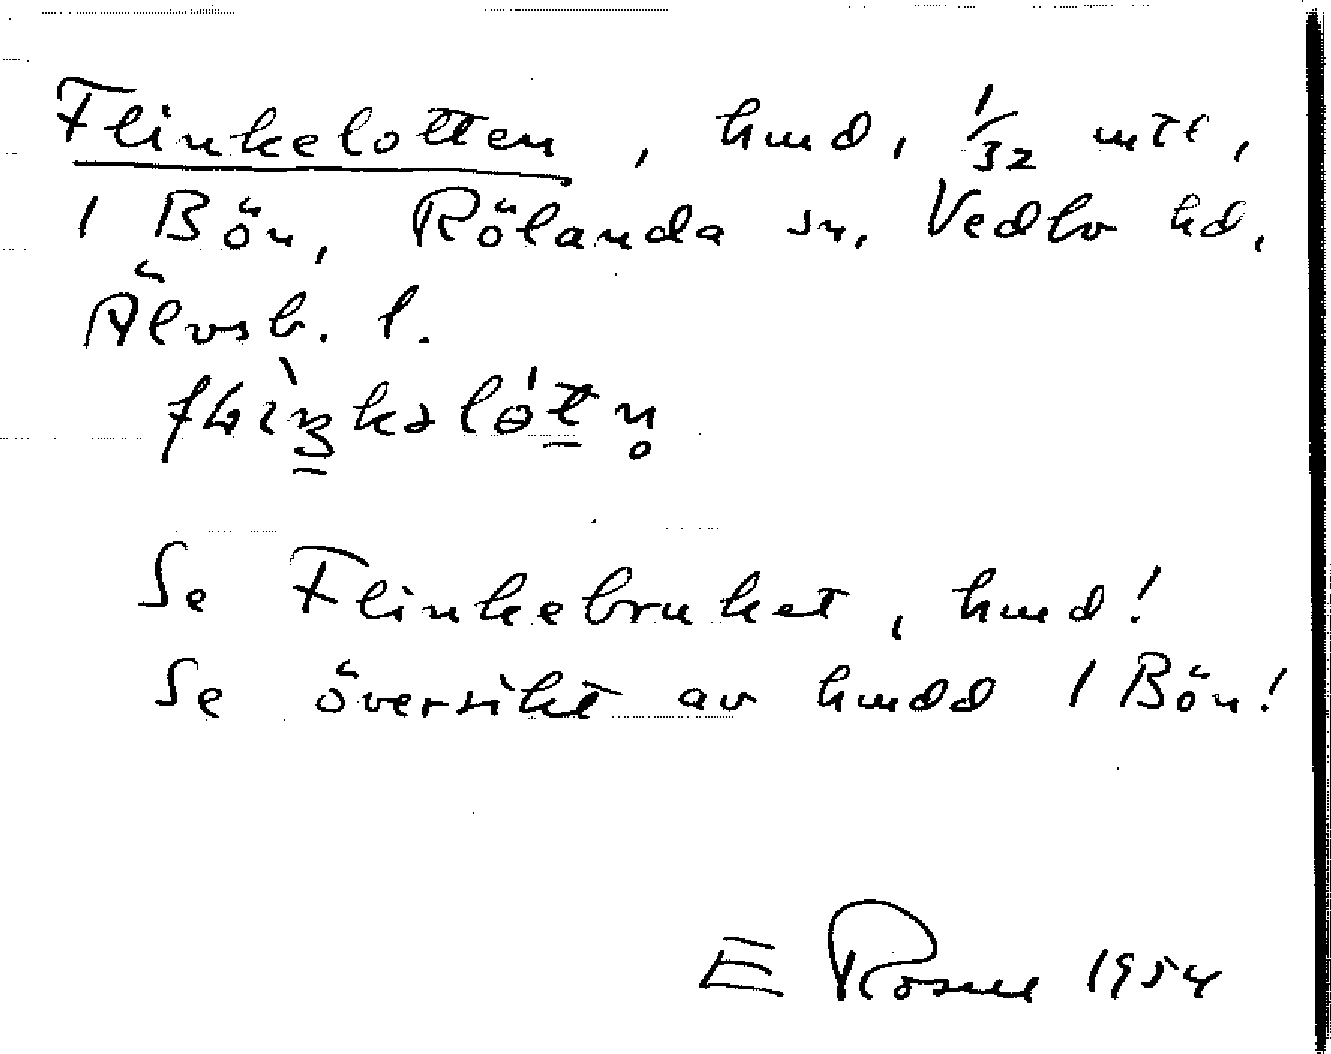 Flinkelotten, hmd, 1/32 mtl,
1 Bön, Rölanda sn, Vedbo hd,
Älvsb. l.
Se Flinkebruket, hmd!
Se översikt av hmdd 1 Bön!
E Rosell 1954